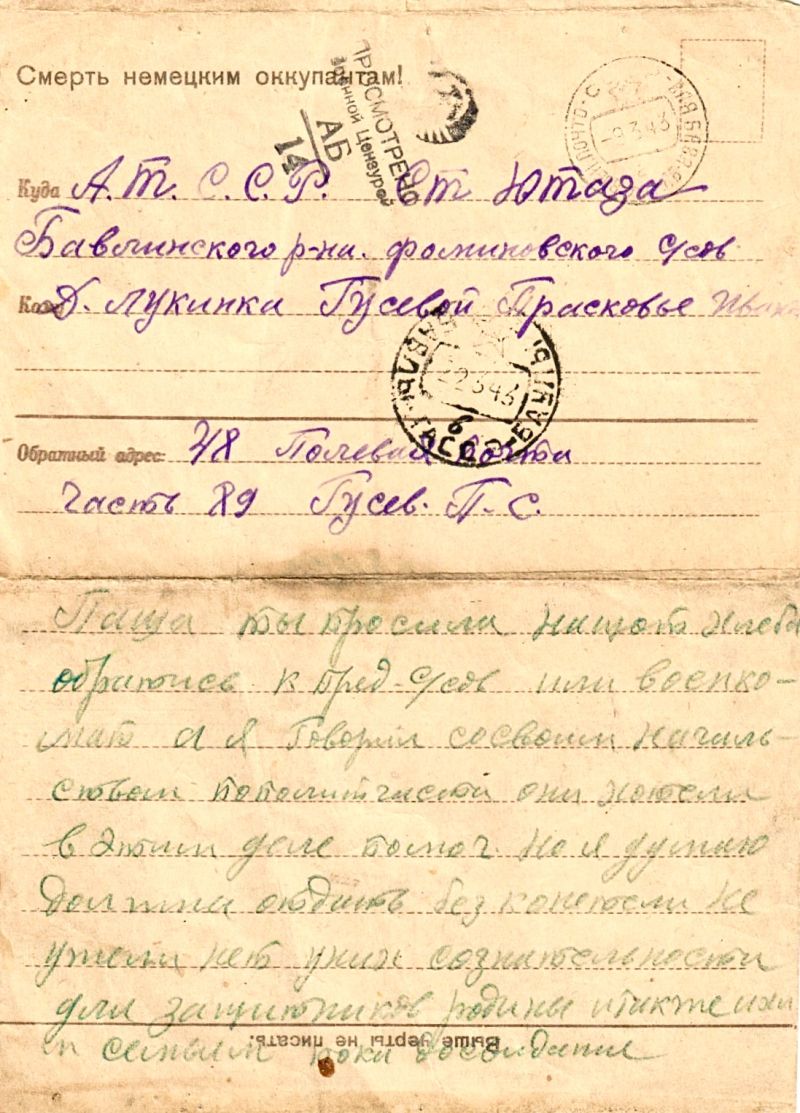 Смерть немецким оккупантам!
ПРОСМОТРЕНО
Военной Цензурой
АБ
14
-9.3.43
Куда А.Т.С.С.Р. Ст Ютаза
Бавлинского р-на. фоминовского с/сов
Кому Д. Лукинка Гусевой Прасковье
22.3.43
6
Обратный адрес: 48 Полевая почта
Часть 89 Гусев. П-С.
Паша ты просила нащот хлеба
обратись к пред-с/сов или военко-
мат а я говорил сосвоим началь-
ством пополитчасти они хотели
в этим деле помоч. но я думаю
должны отдать без конетели не
ужели нет уних сознательности
для защитников родины итакже ихи
семьям пока досвидание
Выше черты не писать!